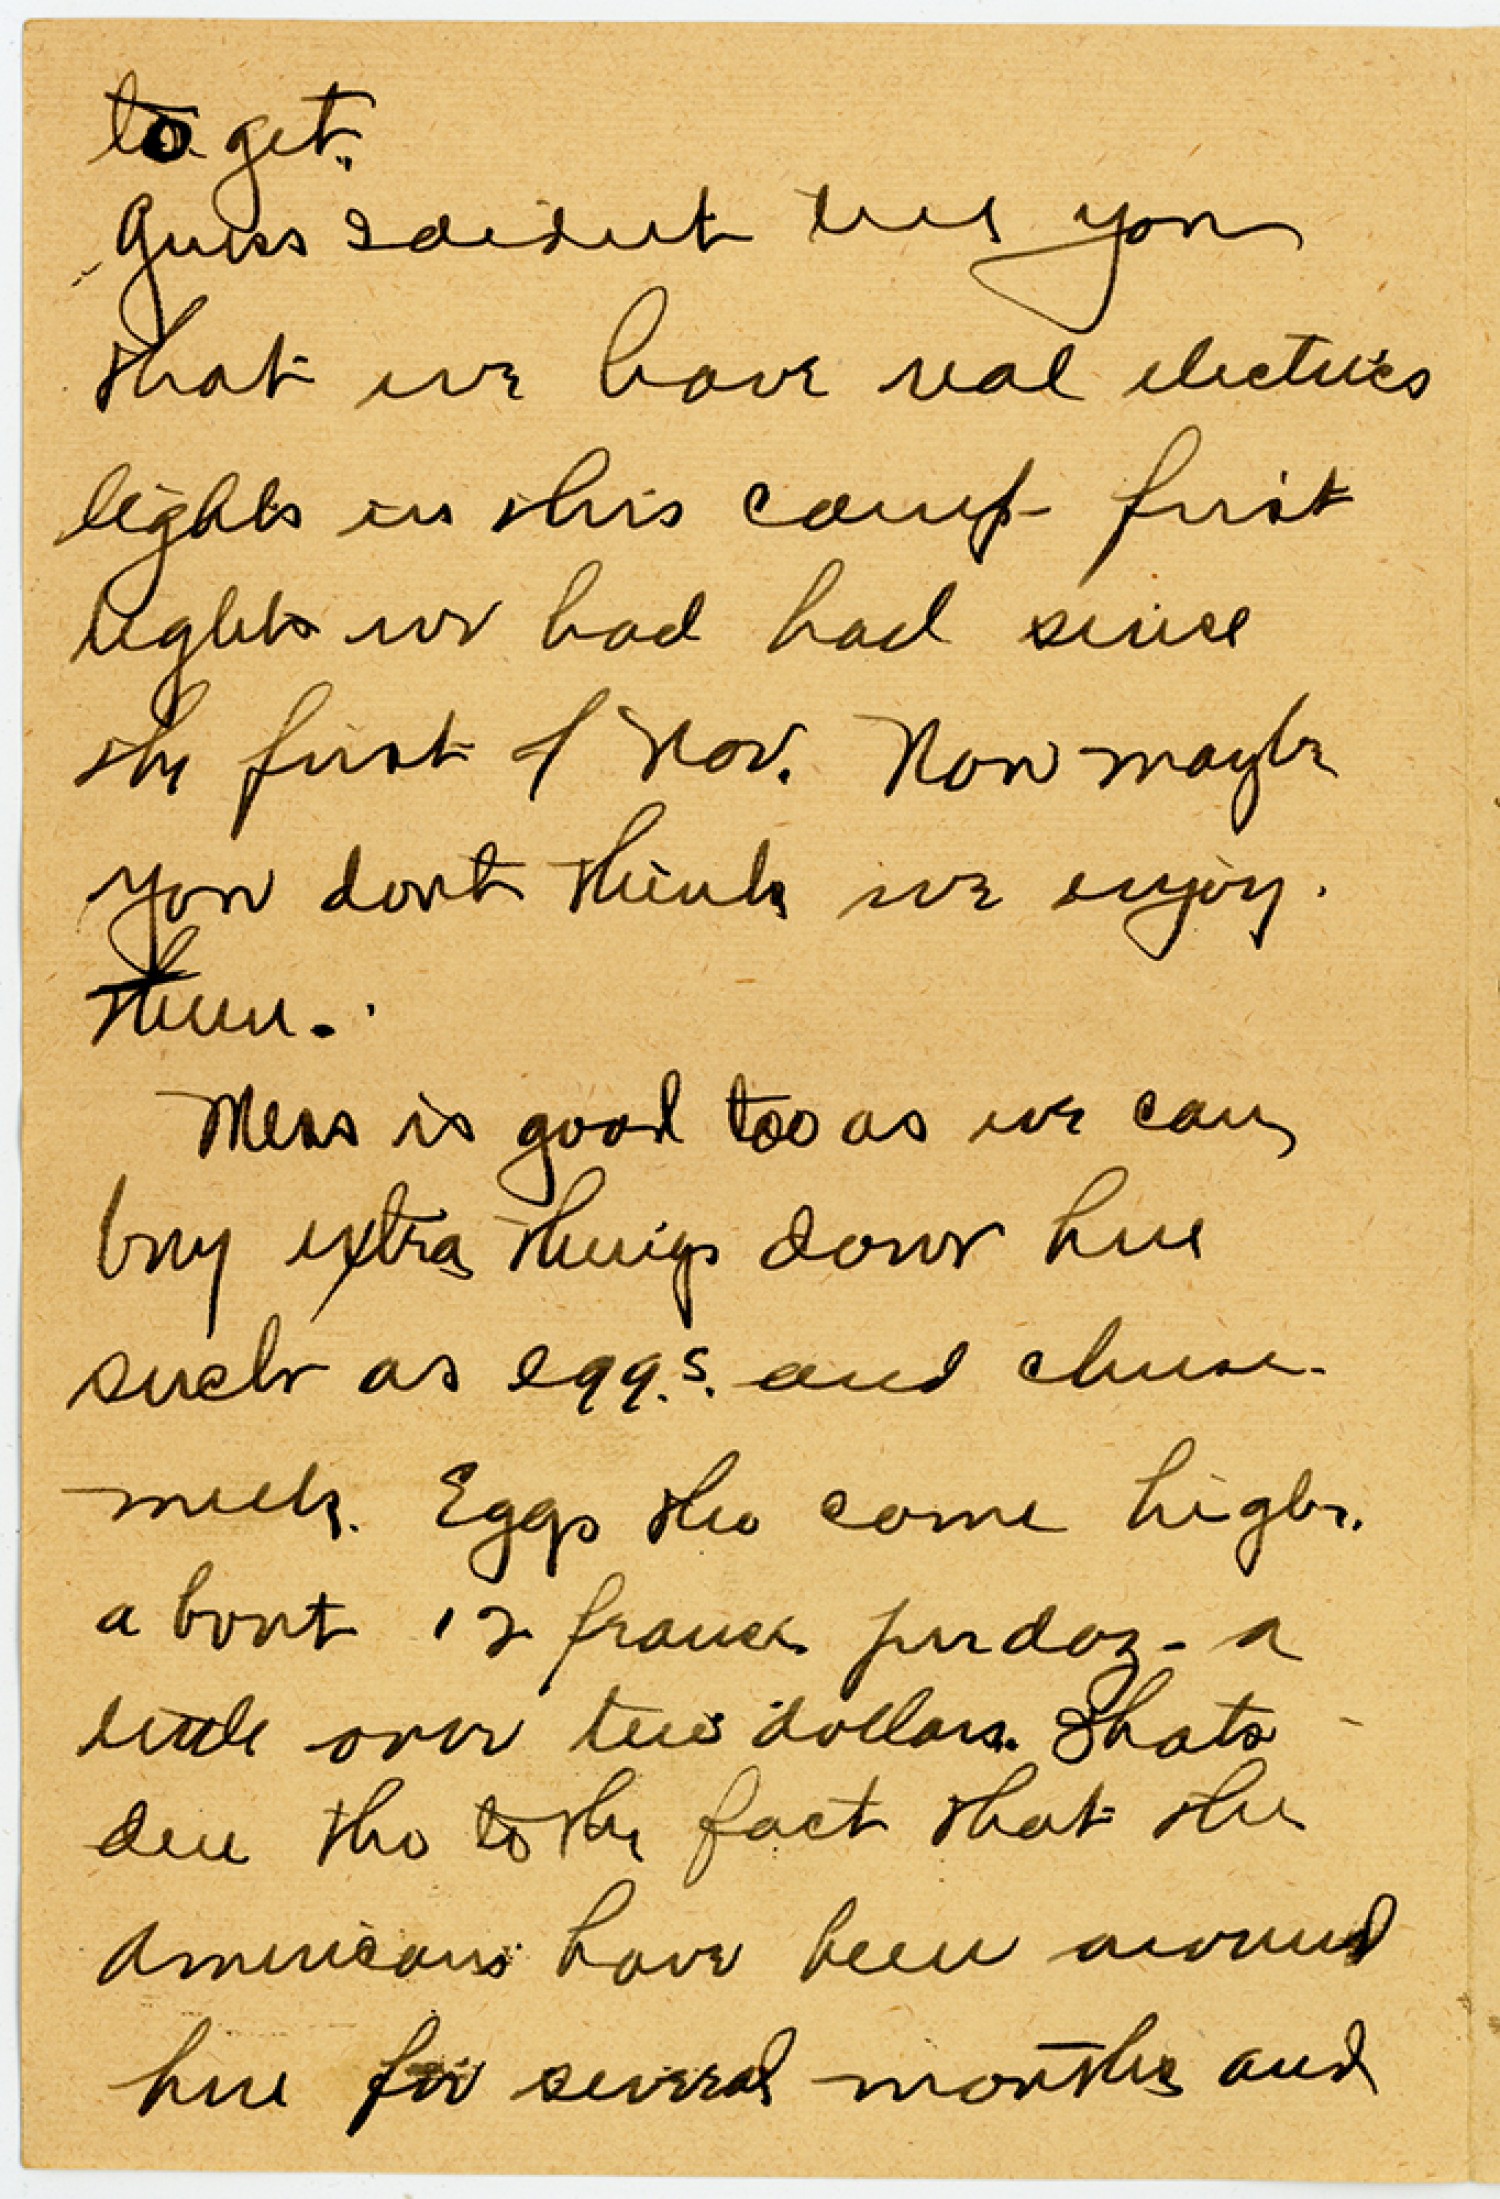 to get.
Guess I dident tell you
that we have real electrics
lights in this camp first
lights we had had since
the first of Nov. Now maybe
you dont think we enjoy.
them.
Mess is good too as we can
buy extra things down here
such as eggs. and cheese.
milk. Eggs tho come high.
about 12 francs per doz - a
little over two dollars. Thats
due tho to the fact that the
Americans have been around
here for several months and